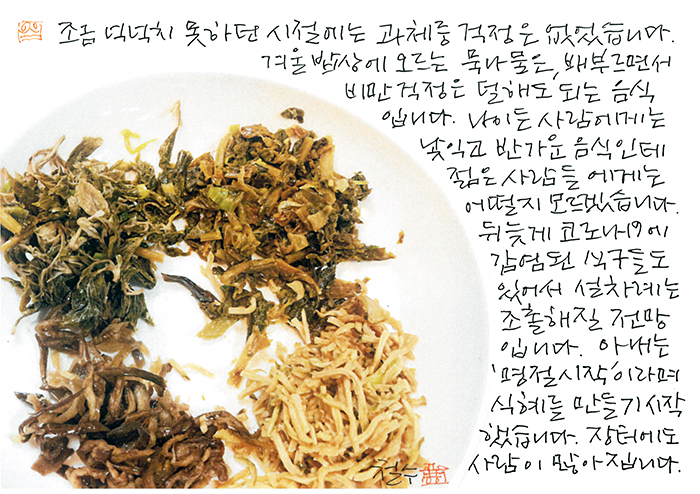 조금 넉넉치 못하던 시절에는 과체중 걱정은 없었습니다.
겨울 밥상에 오르는 묵나물은, 배부르면서
비만 걱정은 덜해도 되는 음식
입니다. 나이든 사람에게는
낯익고 반가운 음식인데
젊은 사람들에게는
어떨지 모르겠습니다.
뒤늦게 코로나19에
감염된 식구들도
있어서 설차례는
조촐해질 전망
입니다. 아내는
'명절시작'이라며
식혜를 만들기 시작
했습니다. 장터에도
사람이 많아집니다.
철수